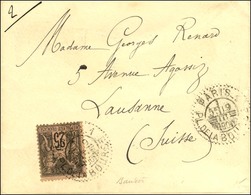 2
Madame Georges Renard
5 Avenue Agassiz
Lausanne
(Suisse)
PARIS
25